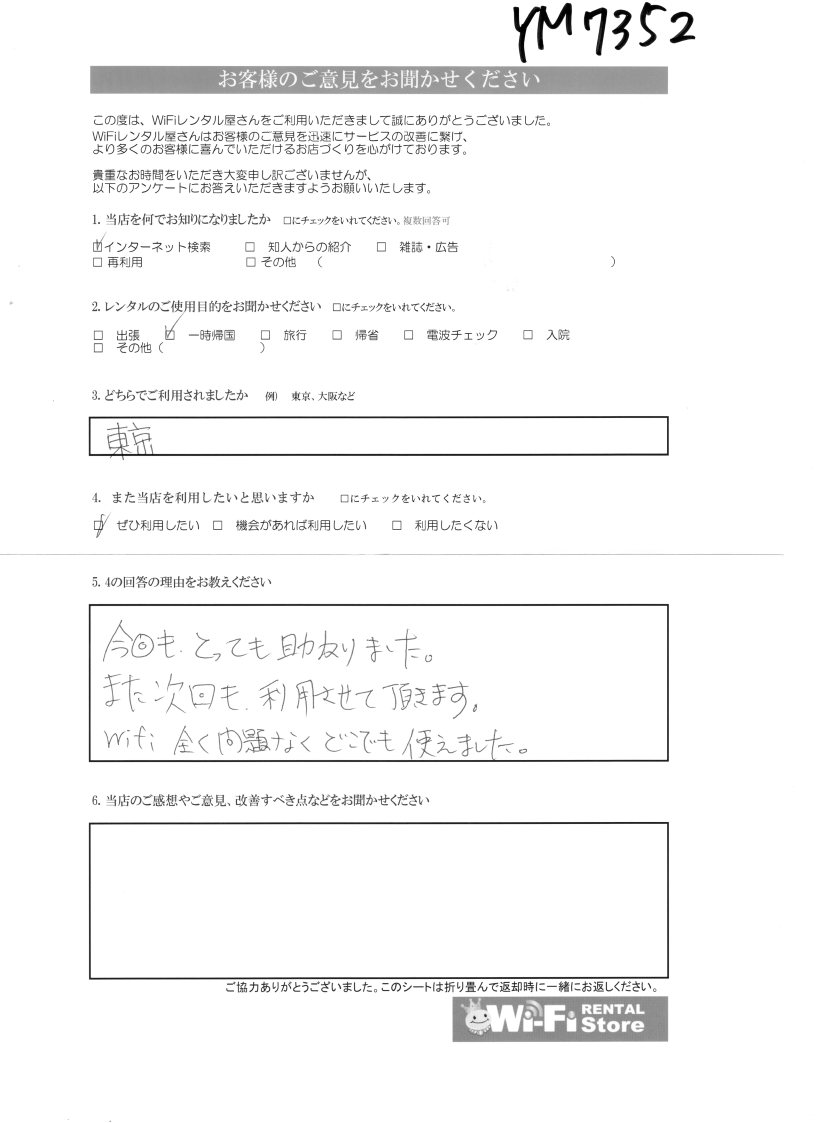 YM7352
お客様のご意見をお聞かせください
この度は、WiFiレンタル屋さんをご利用いただきまして誠にありがとうございました。
WiFiレンタル屋さんはお客様のご意見を迅速にサービスの改善に繋げ、
より多くのお客様に喜んでいただけるお店づくりを心がけております。
貴重なお時間をいただき大変申し訳ございませんが、
以下のアンケートにお答えいただきますようお願いいたします。
1. 当店を何でお知りになりましたか □にチェックをいれてください。複数回答可
☑インターネット検索 □ 知人からの紹介 □ 雑誌・広告
□ 再利用 □ その他 ( )
2. レンタルのご使用目的をお聞かせください □にチェックをいれてください。
□ 出張 ☑ 一時帰国 □ 旅行 □ 帰省 □ 電波チェック □ 入院
□ その他 ( )
3. どちらでご利用されましたか 例) 東京、大阪など
東京
4. また当店を利用したいと思いますか □にチェックをいれてください。
☑ ぜひ利用したい □ 機会があれば利用したい □ 利用したくない
5. 4の回答の理由をお教えください
今回も、とっても助かりました。
また次回も、利用させて頂きます。
Wifi 全く問題なくどこでも使えました。
6. 当店のご感想やご意見、改善すべき点などをお聞かせください
ご協力ありがとうございました。このシートは折り畳んで返却時に一緒にお返しください。
Wi-Fi RENTAL Store